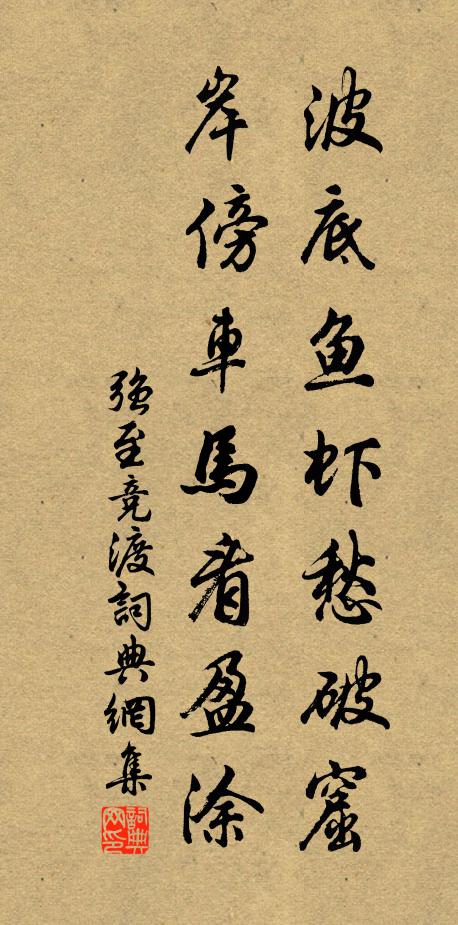 波底鱼虾愁破窟
岸傍車馬看盈涂
強至竞渡詞典網集
詞典网印